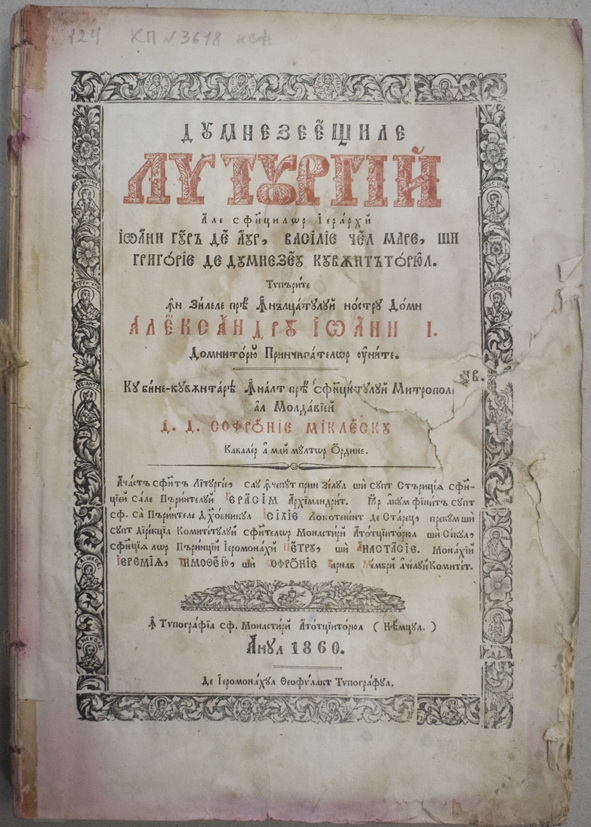 124 КП № 3618
ДꙊМНЕЗЕЕ́ЩИЛЕ
ЛИТꙊРГІЙ
А́ле сфи́ницилѡр Іера́рхй
ІѠА́НИ ГꙊ́РЪ ДЕ́ А́ꙊР, ВАСІ́ЛІЕ ЧЕ́Л МАРЕ, ШИ
ГРИГО́РІЕ ДЕ ДꙊМНЕЗЕ́Ꙋ КꙊВЖНТЪТО́РЮЛ.
Типъри́те
ꙟ҆н Зи́леле пре҆ ꙟналца́тꙋлꙋй но́стрꙋ До́мн
АЛЕѮА́НДРꙊ ІѠА́НН I.
Домнито́рю Принчипа́телѡр ᲂу҆ни́те.
Кꙋ би́не-кꙋвжнта́рѣ ꙟна́лт прѣ сфинци́тꙋлꙋй Митропол
а҆л Молда́вїей
Д. Д. СОФРО́НІЕ МІКЛЕ́СКꙊ
Кавале́р а҆ май мꙋлтѡр О́рдине.
А҆ча́стъ сфи́нтъ Литꙋргі́е, са́ꙋ ꙟ҆чепꙋт прин зі́аꙋа ши сꙋпт Стъриціа сфин-
ціей са́ле Пъри́нтелꙋй ІЕРАСІ́М Архїмандри́т. Іар а҆кꙋм фіи́нит сꙋпт
сф. са Пъри́нтеле Дꙋхо́вникꙋл ІСІ́ХІЕ Локотене́нт де Ста́рец, прекꙋм ши
сꙋпт дирікціа Комите́тꙋлꙋй сфинтелѡр Монасти́рй А҆тотціито́рюла ши Сікꙋл,
сфинціа лѡр Пъри́нцій Іеромона́хй ПЕ́ТРꙊ, ши АНАСТА́СІЕ. Мона́хій
ІЕРЕМІ́А, ТИМОѲЕ́Ю, ши СОФРО́НІЕ Барнав Мембрй а҆че́лꙋй Комите́т.
ꙟ Типогра́фїа сф. Монасти́рй А҆тотціито́рюла ( Нѣ́мцꙋл. )
А҆нꙋл 1860.
Де Іеромона́хꙋл Ѳеофꙋла́кт Типогра́фꙋл.